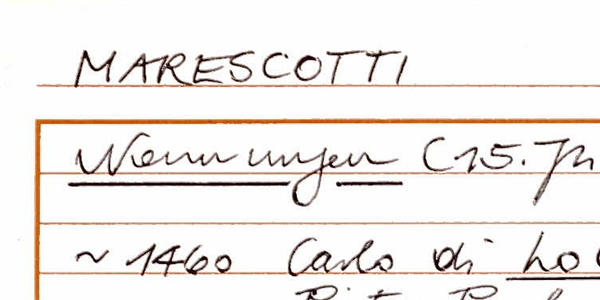 MARESCOTTI
Nennungen (15. Jh
~ 1460 Carlo di